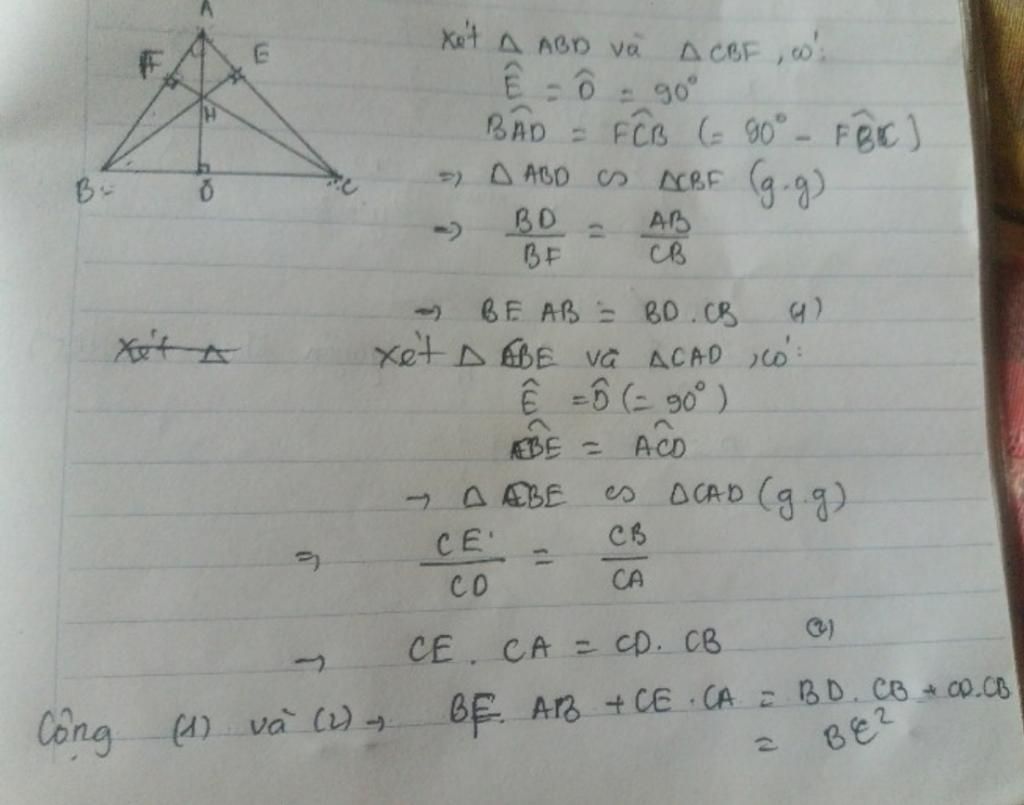 A
F E
H
B D C
Xét Δ ABD và Δ CBF, có:
Ê = D̂ = 90°
BÂD = FĈB (= 90° - FB̂C)
=> Δ ABD ∽ ΔCBF (g.g)
=> BD/BF = AB/CB
→ BF AB = BD.CB (1)
Xét Δ
Xét Δ CBE và ΔCAD, có:
Ê = D̂ (= 90°)
CBE = ACD
→ Δ CBE ∽ ΔCAD (g.g)
=> CE/CD = CB/CA
→ CE. CA = CD. CB (2)
Cộng (1) và (2) → BF. AB + CE.CA = BD.CB + CD.CB
= BC²